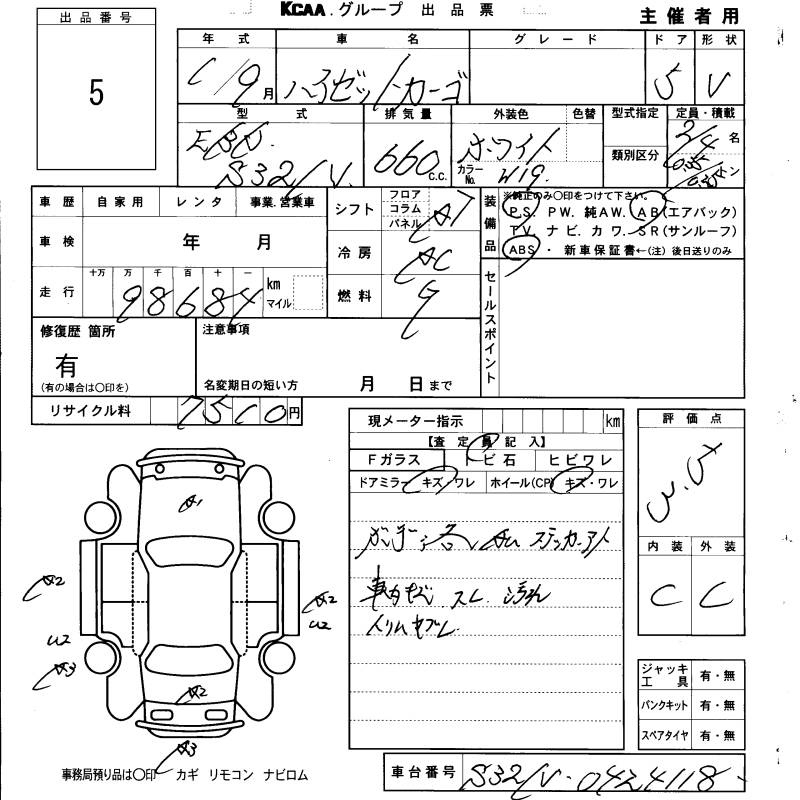 KCAA.グループ 出品票
主催者用
出品番号
5
年式 車名 グレード ドア 形状
C/9月 ハイゼットカーゴ 5 V
型式 排気量 外装色 色替 型式指定 定員・積載
EBD. S321V. 660 C.C. ホワイト カラーNo. W19. 類別区分 2/4名
トン
車歴 自家用 レンタ 事業.営業車
シフト フロア コラム パネル AT
装備品 ※純正のみ〇印をつけて下さい。
P.S. PW. 純AW. AB(エアバック)
TV. ナビ. カワ. SR(サンルーフ)
ABS ・ 新車保証書←(注)後日送りのみ
車検 年 月
冷房 AC
走行 十万 万 千 百 十 一 98684 km マイル
燃料 G
セールスポイント
修復歴 箇所
有
(有の場合は〇印を)
注意事項
名変期日の短い方 月 日まで
リサイクル料 7510円
現メーター指示 km
【査定員記入】
Fガラス トビ石 ヒビワレ
ドアミラー キズ・ワレ ホイール(CP) キズ・ワレ
ステッカーアト
スレ 汚れ
評価点
3.5
内装 外装
C C
A1
A2
A2
U2
U2
A3
A2
A3
ジャッキ工具 有・無
パンクキット 有・無
スペアタイヤ 有・無
事務局預り品は〇印 カギ リモコン ナビロム
車台番号 S321V-0424118